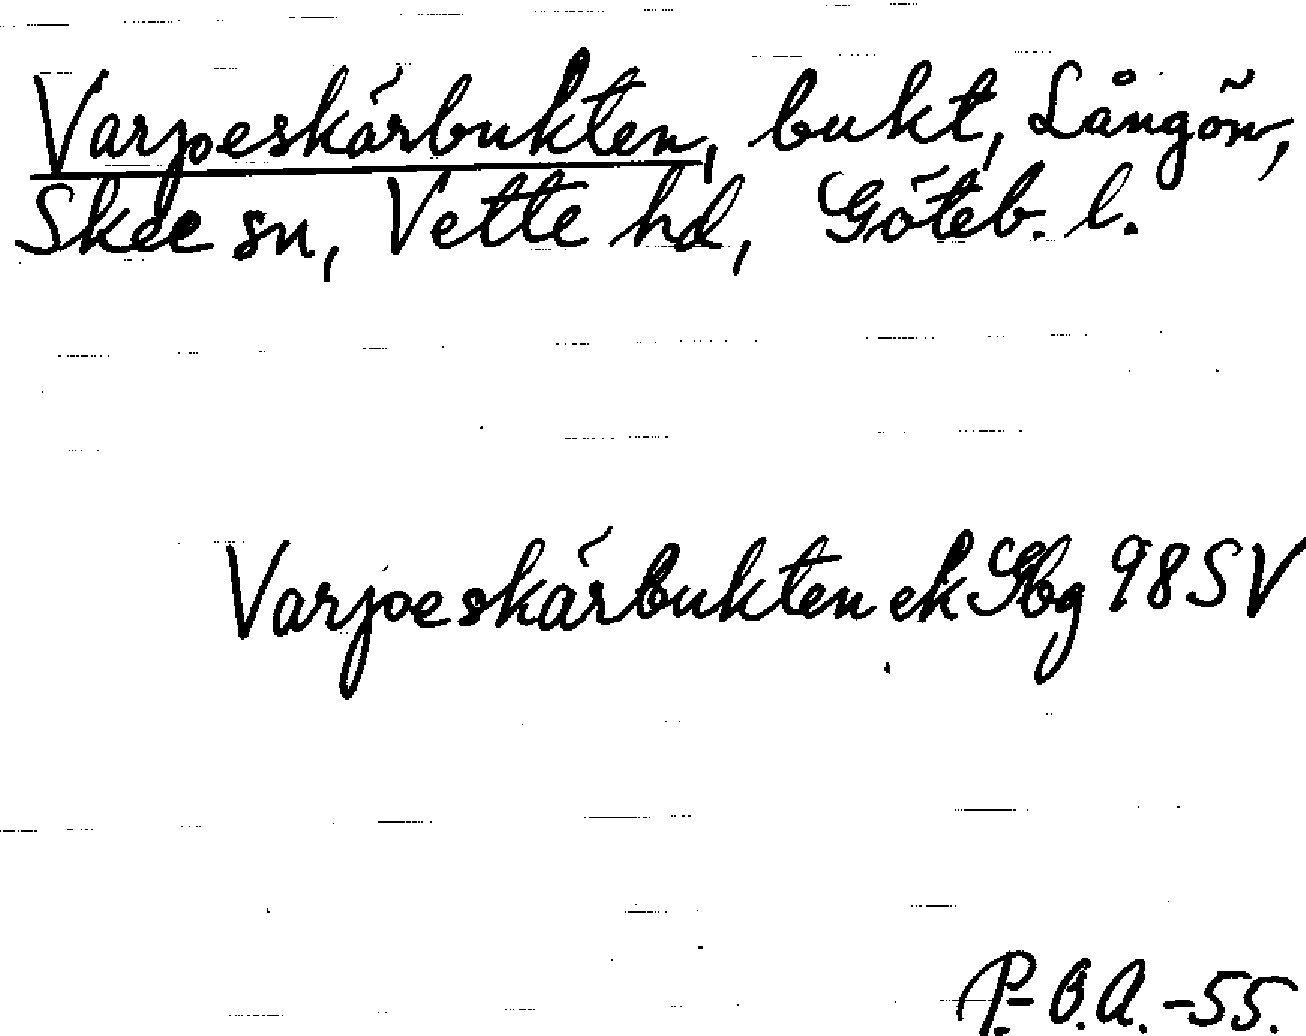 Varpeskärbukten, bukt, Långön,
Skee sn, Vette hd, Göteb. l.
Varpeskärbukten ek Gbg 98 SV
P.-O.A. -55.